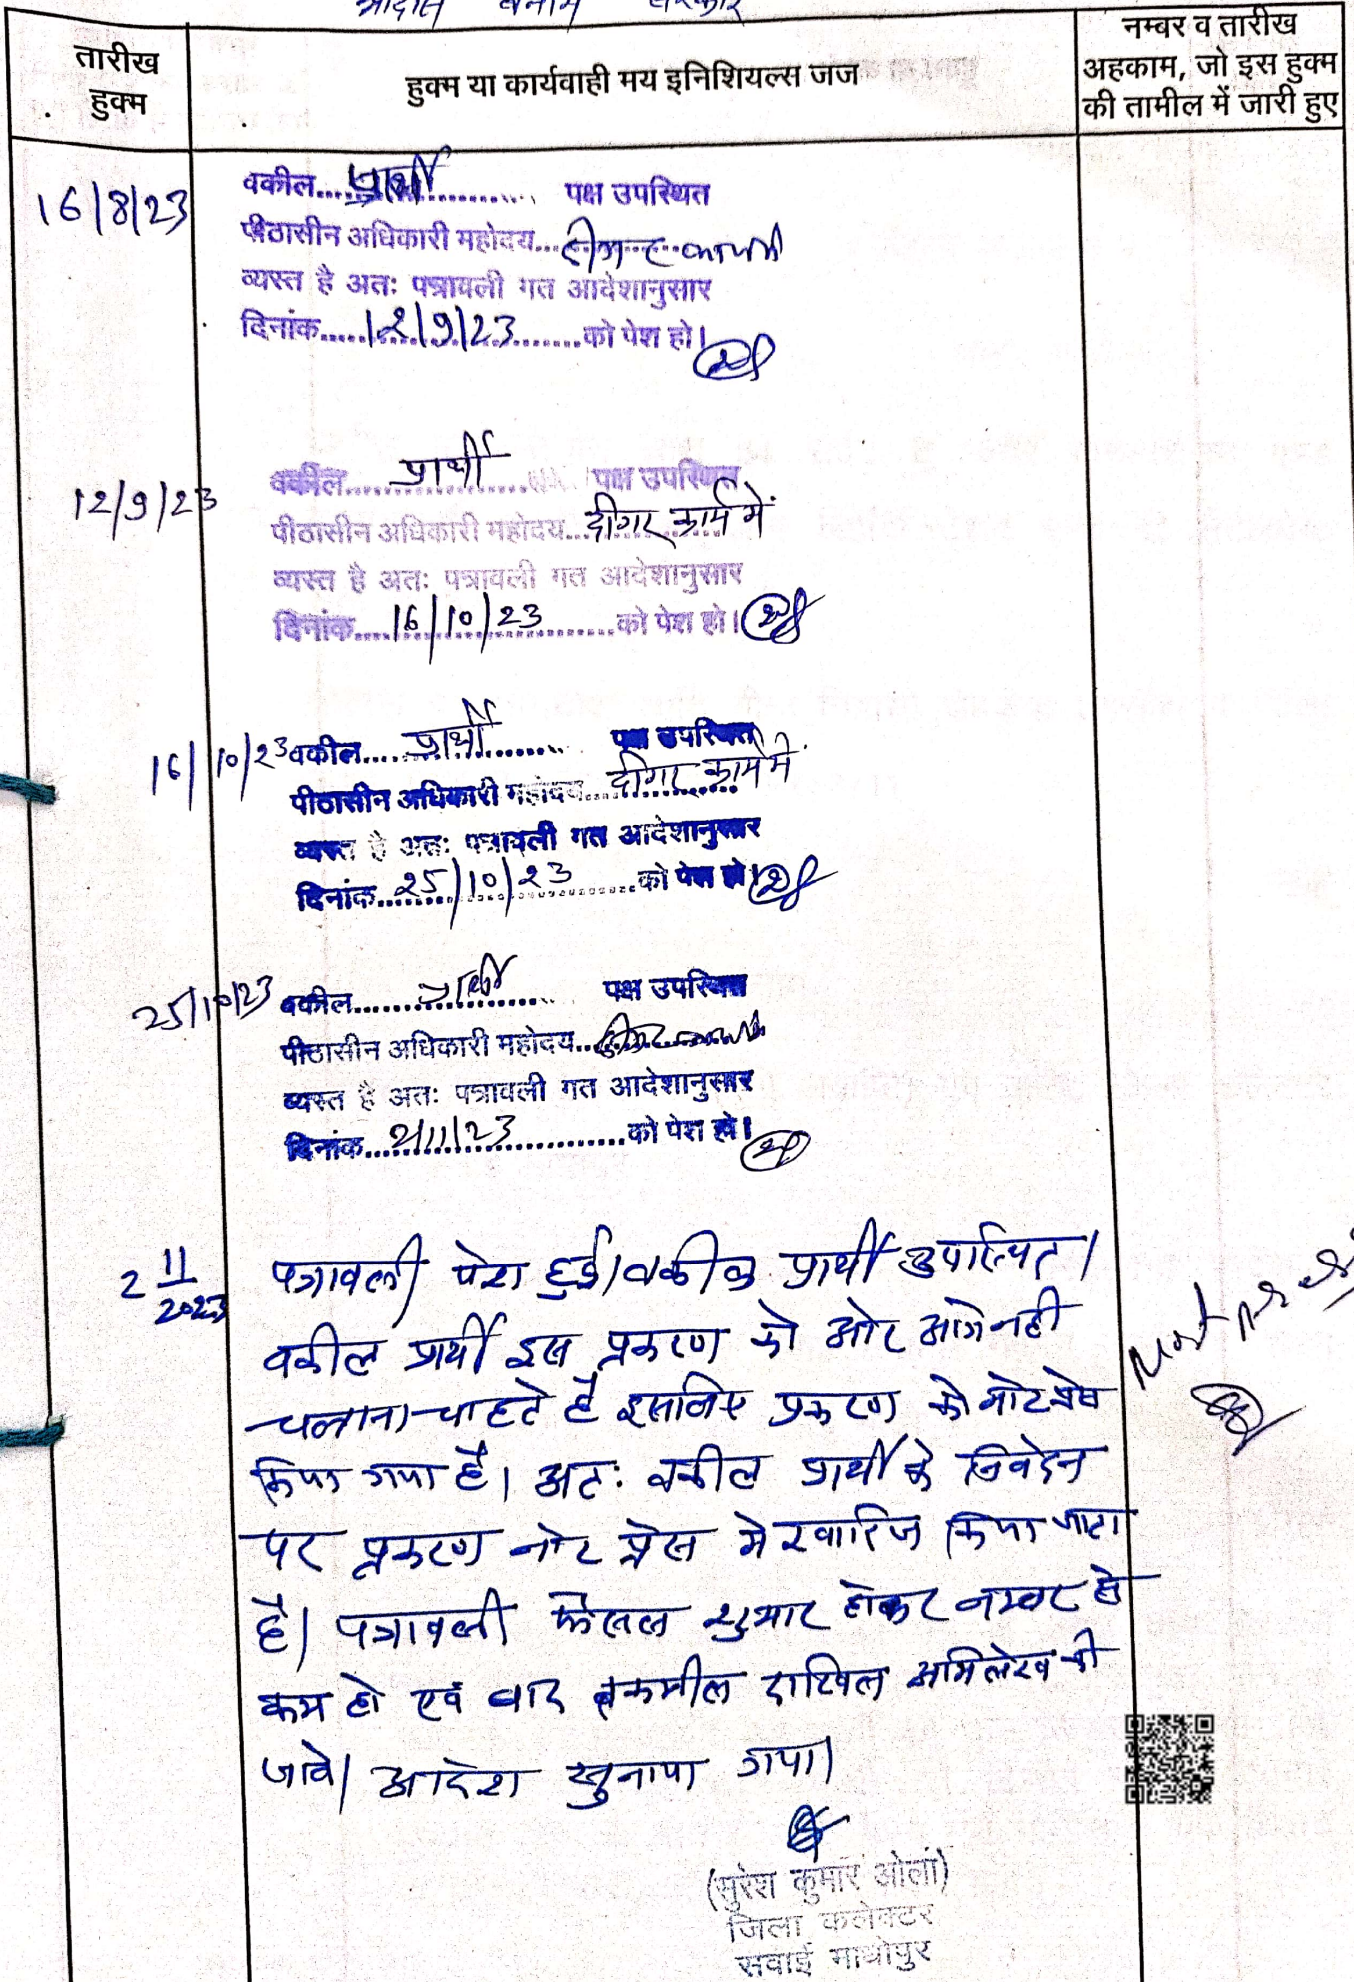 बनाम सरकार
तारीख
हुक्म
हुक्म या कार्यवाही मय इनिशियल्स जज
नम्बर व तारीख
अहकाम, जो इस हुक्म
की तामील में जारी हुए
16/8/23
वकील....प्रार्थी.... पक्ष उपस्थित
पीठासीन अधिकारी महोदय....
व्यस्त है अतः पत्रावली गत आदेशानुसार
दिनांक.....12/9/23.......को पेश हो।
12/9/23
वकील....प्रार्थी.... पक्ष उपस्थित
पीठासीन अधिकारी महोदय...दीगर कार्य में
व्यस्त है अतः पत्रावली गत आदेशानुसार
दिनांक....16/10/23.......को पेश हो।
16/10/23
वकील....प्रार्थी.... पक्ष उपस्थित
पीठासीन अधिकारी महोदय...दीगर कार्य में
व्यस्त है अतः पत्रावली गत आदेशानुसार
दिनांक...25/10/23.......को पेश हो।
25/10/23
वकील....प्रार्थी.... पक्ष उपस्थित
पीठासीन अधिकारी महोदय...
व्यस्त है अतः पत्रावली गत आदेशानुसार
दिनांक...2/11/23.......को पेश हो।
2 11/2023
पत्रावली पेश हुई। वकील प्रार्थी उपस्थित।
वकील प्रार्थी इस प्रकरण को ओर आगे नही
चलाना चाहते है इसलिए प्रकरण को नोट प्रेस
किया गया है। अतः वकील प्रार्थी के निवेदन
पर प्रकरण नोट प्रेस मे खारिज किया जाता
है। पत्रावली फैसल शुमार होकर नम्बर से
कम हो एवं बाद तकमील दाखिल अभिलेख की
जावे। आदेश सुनाया गया।
Not press
(सुरेश कुमार ओला)
जिला कलेक्टर
सवाई माधोपुर